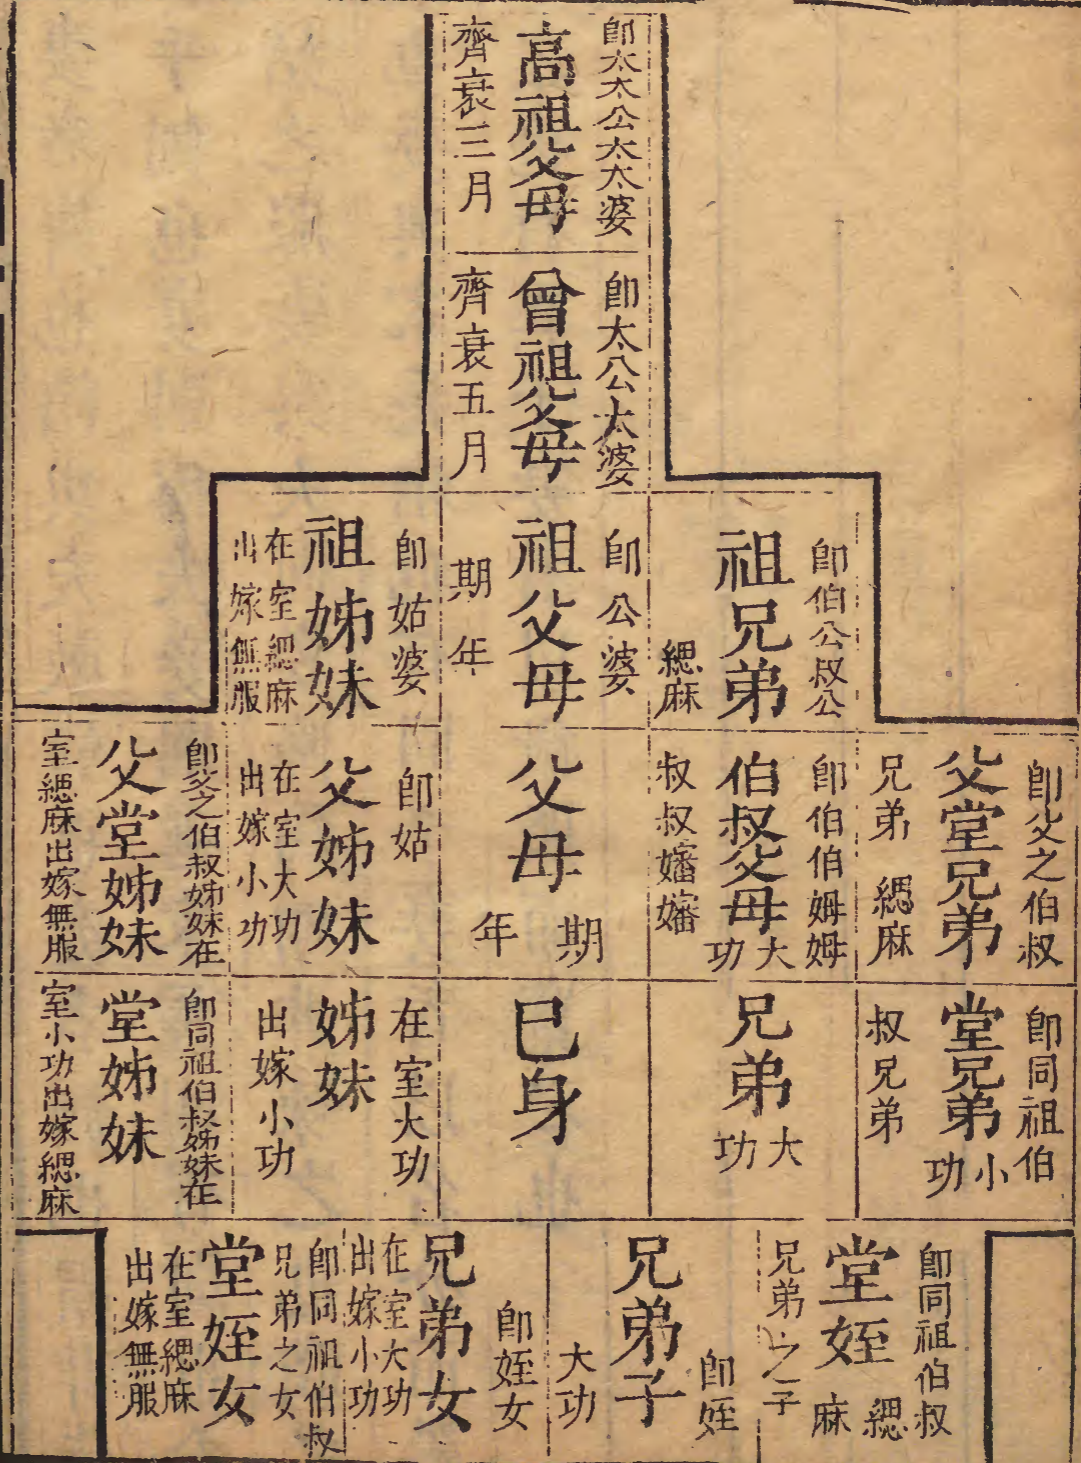 即太太公太太婆
高祖父母
齊衰三月
即太公太婆
曾祖父母
齊衰五月
即伯公叔公
祖兄弟
緦麻
即公婆
祖父母
期年
即姑婆
祖姊妹
在室緦麻
出嫁無服
即父之伯叔
父堂兄弟
兄弟 緦麻
即伯伯姆姆
伯叔父母
大功
叔叔嬸嬸
父母
期年
即姑
父姊妹
在室大功
出嫁小功
即父之伯叔姊妹在
父堂姊妹
室緦麻出嫁無服
即同祖伯
堂兄弟
小功
叔兄弟
兄弟
大功
巳身
在室大功
姊妹
出嫁小功
即同祖伯叔姊妹在
堂姊妹
室小功出嫁緦麻
即同祖伯叔
堂姪
緦麻
兄弟之子
即姪
兄弟子
大功
即姪女
兄弟女
在室大功
出嫁小功
即同祖伯叔
兄弟之女
堂姪女
在室緦麻
出嫁無服